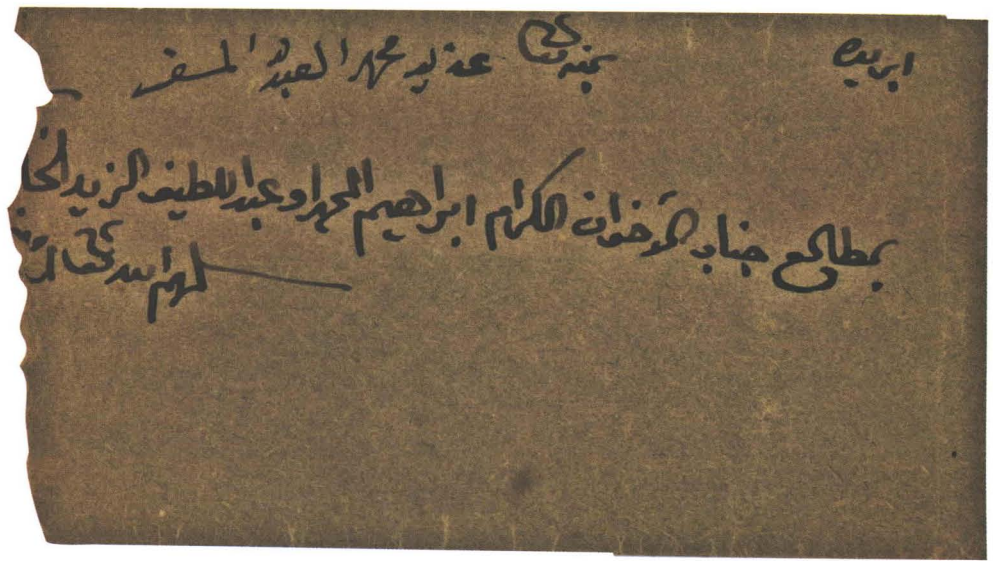 ابريده بمنه تعالى عن يد محمد العبدالله المسفر
بمطالع جناب الاخوان الكرام ابراهيم المحمد و عبد اللطيف الزيد
سلمهم الله تعالى